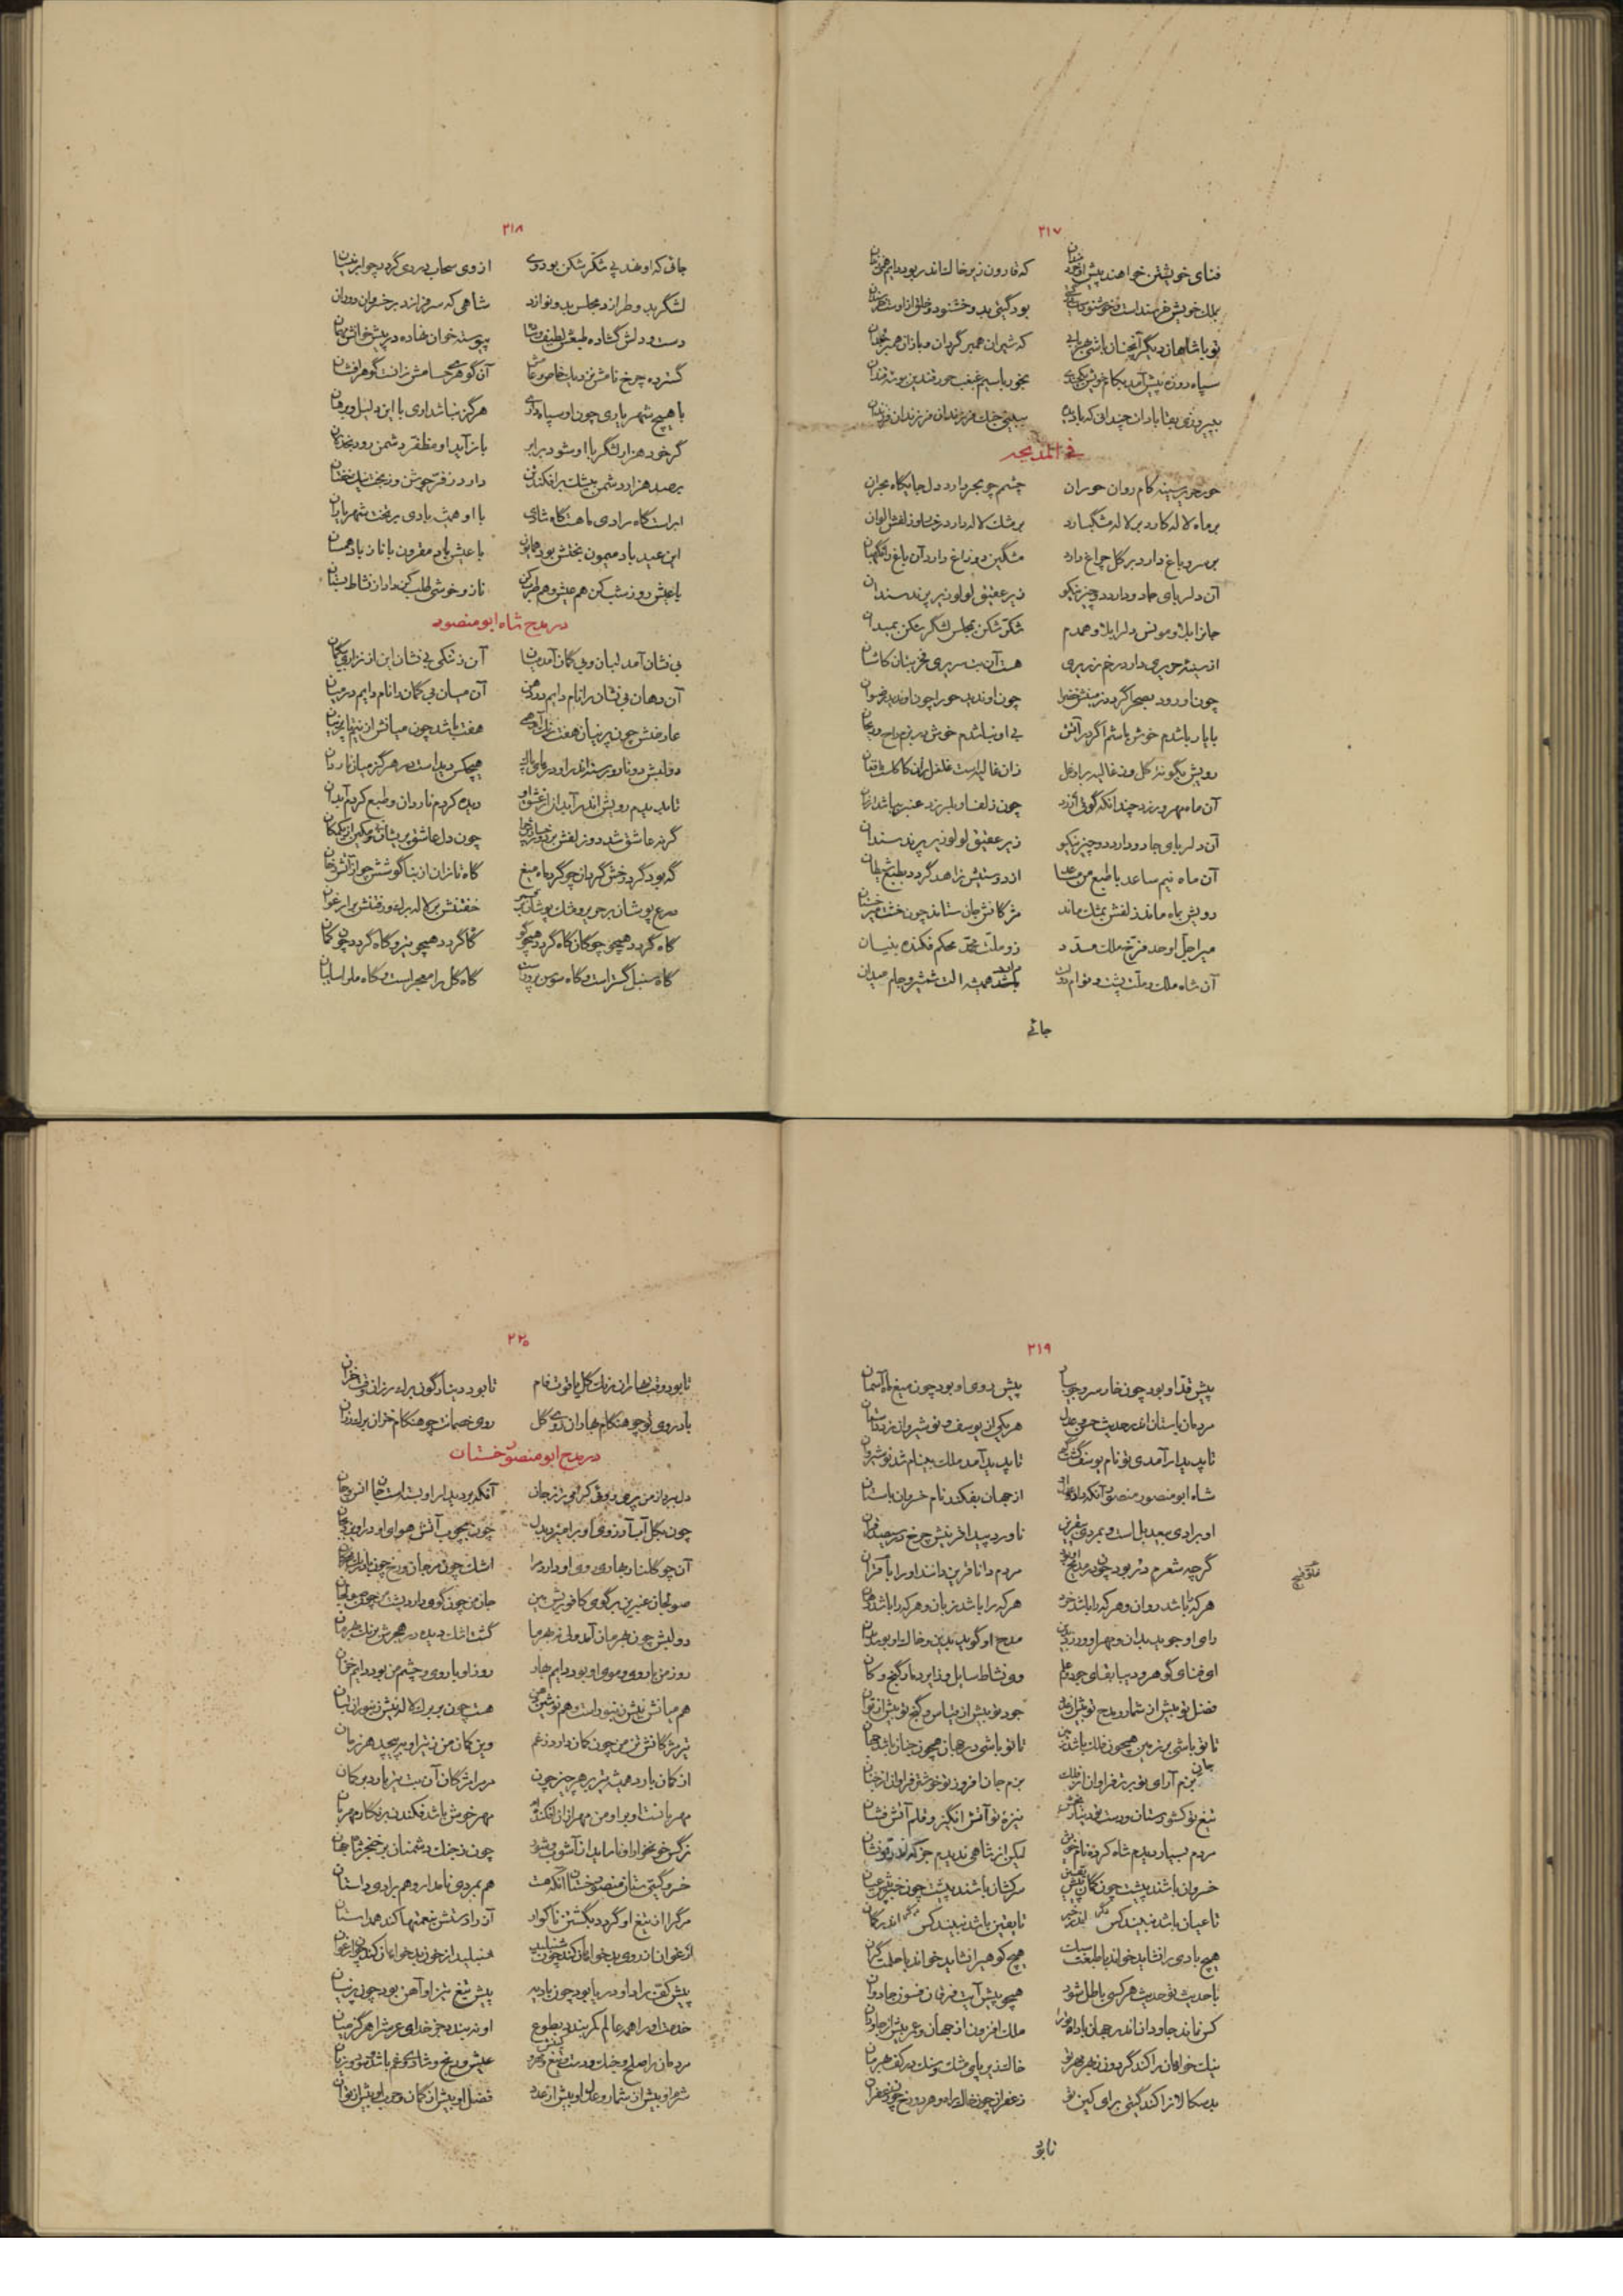 ۲۱۷
فنای خویشتن خواهند پیش که قارون زیر خاک اندر بود دایم
بملک خویش خرسند است و خوشنود بود گیتی بدو خشنود و خلق از او
تو با شاهان دیگر آنچنان باشی که شیران هم گردان و بازان
سپاه روزه پیش آمد بکام خویش بخور با سیم غبغب حور
به پیروزی بقا بادات چندانی که ببینی جنگ فرزندان فرزندان فرزندان
فی المدیحه
حور حریر سینه کام روان حوران چشم چو بحر دارد دل جایگاه بحران
بر ماه لاله کارد بر لاله مشگ بارد بر مشک لاله دارد زلفش الوان
بر سرو باغ دارد بر گل چراغ دارد مشگین دو زاغ دارد آن باغ را نگهبان
آن دلربای جادو دارد دو چیز نیکو زیر عقیق لولو زیر پرند سندان
جانرا بلا و مونس دلرا بلا و همدم شکر شکن بمجلس لشگر شکن بمیدان
از سینه حریری دارد رخ زریری هست آن بت سریری فخر بتان کاشان
چون او رود بصحرا گردد زمینش خضرا چون او ندید حورا چون او ندید رضوان
با یار باشدم خوش باشم اگر در آتش بی او نباشدم خوش در بزم راح و ریحان
رویش بگونه گل وز غالیه برو غل زان غالیه است غلغل
آن ماه مهرورزد چندانکه گوئی ارزد چون زلف او بلرزد عنبر بها شد ارزان
آن دلربای جادو دارد دو چیز نیکو زیر عقیق لولو زیر پرند سندان
آن ماه سیم ساعد با طبع من مساعد از دوستیش زاهد گردد بطبع شیطان
رویش بماه ماند زلفش بمشک ماند مژگانش جان ستاند چون خشت میر خستان
میر اجل اوحد فرخ ملک محمد زو ملت محمد محکم فکنده بنیان
آن شاه ملک و ملت پشت و قوام دولت باشد همیشه آلت شمشیر و جام میدان
جائی
۲۱۸
جائی که او خندد بی شکر شکن بودوی از وی سحاب در دی گردد چو ابر نیسان
لشگر بدو طرازد مجلس بدو نوازد شاهی که سرفرازد بر خسروان دوران
دست و دلش گشاده طبعش لطیف و ساده پیوسته خوان نهاده در پیش خوانش مهمان
گسترده چرخ نامش نزدیک خاص و عامش آن گوهر حسامش زانست گوهر افشان
با هیچ شهریاری چون او سپاه داری هرگز نباشد آری با این دلیل و برهان
گر خود هزار لشگر با او شود برابر باز آید او مظفر دشمن رود بخذلان
بر صد هزار دشمن بیشک برافکند تن دارد ز فر جوشن وز بخت نیک خفتان
ایراست گاه رادی ما هست گاه شادی با او همیشه بادی بر تخت شهریاران
این عید باد میمون بختش بود همایون با عیش باد مقرون با ناز باد همسان
با عیش روز شب کن هم عیش و هم طرب کن ناز و خوشی طلب کن داد از نشاط بستان
در مدح شاه ابومنصور
بی نشان آمد لبان و بی گمان آمد میان آن ز تنگی بی نشان این از نزاری بی گمان
آن دهان بی نشان را نام دایم در دهن آن میان بی گمان را نام دایم در میان
عارضش چون پرنیان هفت رنگ آمد همی هفت باشد چون میانش از نیم تا پرنیان
دو لبش دو نار و رسته اندر او در هیچکس دیداست در هرگز میان ناردان
تا بدیدم رویش اندر آبدان از عشق او دیده کردم ناردان و طبع کردم آبدان
گرنه عاشق شد دو زلفش بر دو رخسارش چرا چون دل عاشق پریشانند
گه بود گرد رخش گریان چو گرد ماه میغ گاه تازان از بناگوشش چو از آتش دخان
درع پوشان بر حریر و مشک پوشان بر قمر خفتنش بر لاله برگ و رفتنش بر ارغوان
گاه گردد همچو چوگان گاه گردد همچو گو گاه گردد همچو تیر و گاه گردد چون کمان
گاه سنبل گستر است و گاه سوسن پرور است گاه گل را معجر است و گاه مه را سایبان
۲۱۹
پیش قد او بود چون خار سرو جویبار پیش روی او بود چون میغ ماه آسمان
مردمان باستان اندر حدیث حسن و عدل هر یکی از یوسف و نوشیروان زد داستان
تا پدیدار آمدی تو نام یوسف گشت گم تا پدید آمد ملک بی نام شد نوشیروان
شاه ابومنصور منصور آنکه داد و عدل او از جهان بفکند نام خسروان باستان
او برادی بی بدیل است و بمردی بی قرین ناورد پیدا قرینش چرخ در سیصد قران
گرچه شعرم در بود چون در مدیح مردم دانا قرین دانند او را با قران
هر که را باشد روان و هر که را باشد خرد هر که را باشد زبان و هر که را باشد دهان
رای او جوید بدان و مهر او ورزد بدین مدح او گوید بدین و خاک او بوسد بدان
ای فنای گوهر و دیبا بقای جود و علم وی نشاط سایل و زایر دمار گنج و کان
فضل تو بیش از شمار و مدح تو بیش از عدد جود تو بیش از قیاس و گنج تو بیش از توان
تا تو باشی بر زمین همچون فلک باشد زمین تا تو باشی در جهان همچون جنان باشد جهان
بزم آرای تو برتر فراوان از فلک بزم جان افروز تو خوشتر فراوان از جنان
تیغ تو کشورستان و دست تو دینار بخش نیزه تو آتش انگیز و قلم آتش فشان
مردم بسیار دیدم شاه کرده نام خویش لیکن از شاهی ندیدم جز که اندر تو نشان
خسروان باشند پیشت چون گمان پیش یقین سرکشان باشند پیشت چون خبر پیش عیان
تا عیان باشد نبیند کس مگر اندر خبر تا یقین باشد نبیند کس مگر اندر گمان
هیچ بادی را نشاید خواند با طبعت سبک هیچ کوهیرا نشاید خواند با حلمت گران
با حدیث تو حدیث هر کسی باطل شود همچو پیش آیت فرقان فسون جادوان
کس نماند جاودان اندر جهان باد ترا ملک افزون از جهان و عمر بیش از جاودان
نیک خواهان را کند گردون ز بهر مهر تو خاک زیر پای مشک و سنگ در کف بهرمان
بدسگالان را کند گیتی برای کین تو زعفران چون خاک راه و هر دو رخ چون زعفران
تا بود
۲۲۰
تا بود وقت بهاران برنگ گل یاقوت فام تا بود دینارگون برگ رزان وقت خزان
باد روی تو چو هنگام بهاران روی گل روی خصمانت چو هنگام خزان برگ رزان
در مدح ابومنصور خستان
دل ببرد از من پری روئی گرامی تر ز جان آنکه بر دیدار او بسته است جان انس و جان
چون بگل آب آرزوی او برآمیزد بدل چون بچوب آتش هوای او درآویزد بجان
آن چو گلنار بهاری روی او دارد مرا اشک چون مرجان و رخ چون باد رنگ مهرگان
صولجان عنبرین بر گوی کافوریش بین جان من چون گوی دارد پشت من چون صولجان
دو لبش چون بهرمان آمد ولی زهر مرا گشت اشک دیده در هجرش برنگ بهرمان
روز من با روی و موی او بود دایم بهار روز او با روی و چشم من بود دایم خزان
هم میانش نیش زنبور است و هم نوشین دهن هست چون بر برگ لاله نیش زنبور آن لبان
تیر مژگانش تن من چون کمان دارد ز غم وین کمان من ز تیر او بپیچد هر زمان
از کمان بارد همیشه تیر بر هر چیز چون مر مرا مژگان آن بت تیر بارد بر کمان
مهربانست او بر او من مهر ازان افکنده ام مهر خوش باشد فکندن بر نگار مهربان
نرگس خونخوار او نا مابد از آشوب و شور چون ز جنگ دشمنان بر خنجر شاه جهان
خسرو گیتی ستان منصور خستان آنکه هست هم بمردی نامدار و هم برادی داستان
مرگ را از تیغ او گردد بگشتن ناگوار آز را دستش بنعمتها کند همداستان
ارغوان از روی بدخواهان کند چون شنبلید شنبلید از خون بدخواهان کند چون ارغوان
پیش کف راد او دریا بود چون بادیه پیش تیغ تیز او آهن بود چون پرنیان
خدمت او را همه عالم کمر بندد بطوع او نبندد جز خدای عرش را هرگز میان
مردمان را صلح و جنگ و دست و تیغ و مهر و کینش عیش و رنج و شادی و غم باشد و سود و زیان
شرم او بیش از شمار و عدل او بیش از عدد فضل او بیش از گمان و جود او بیش از توان